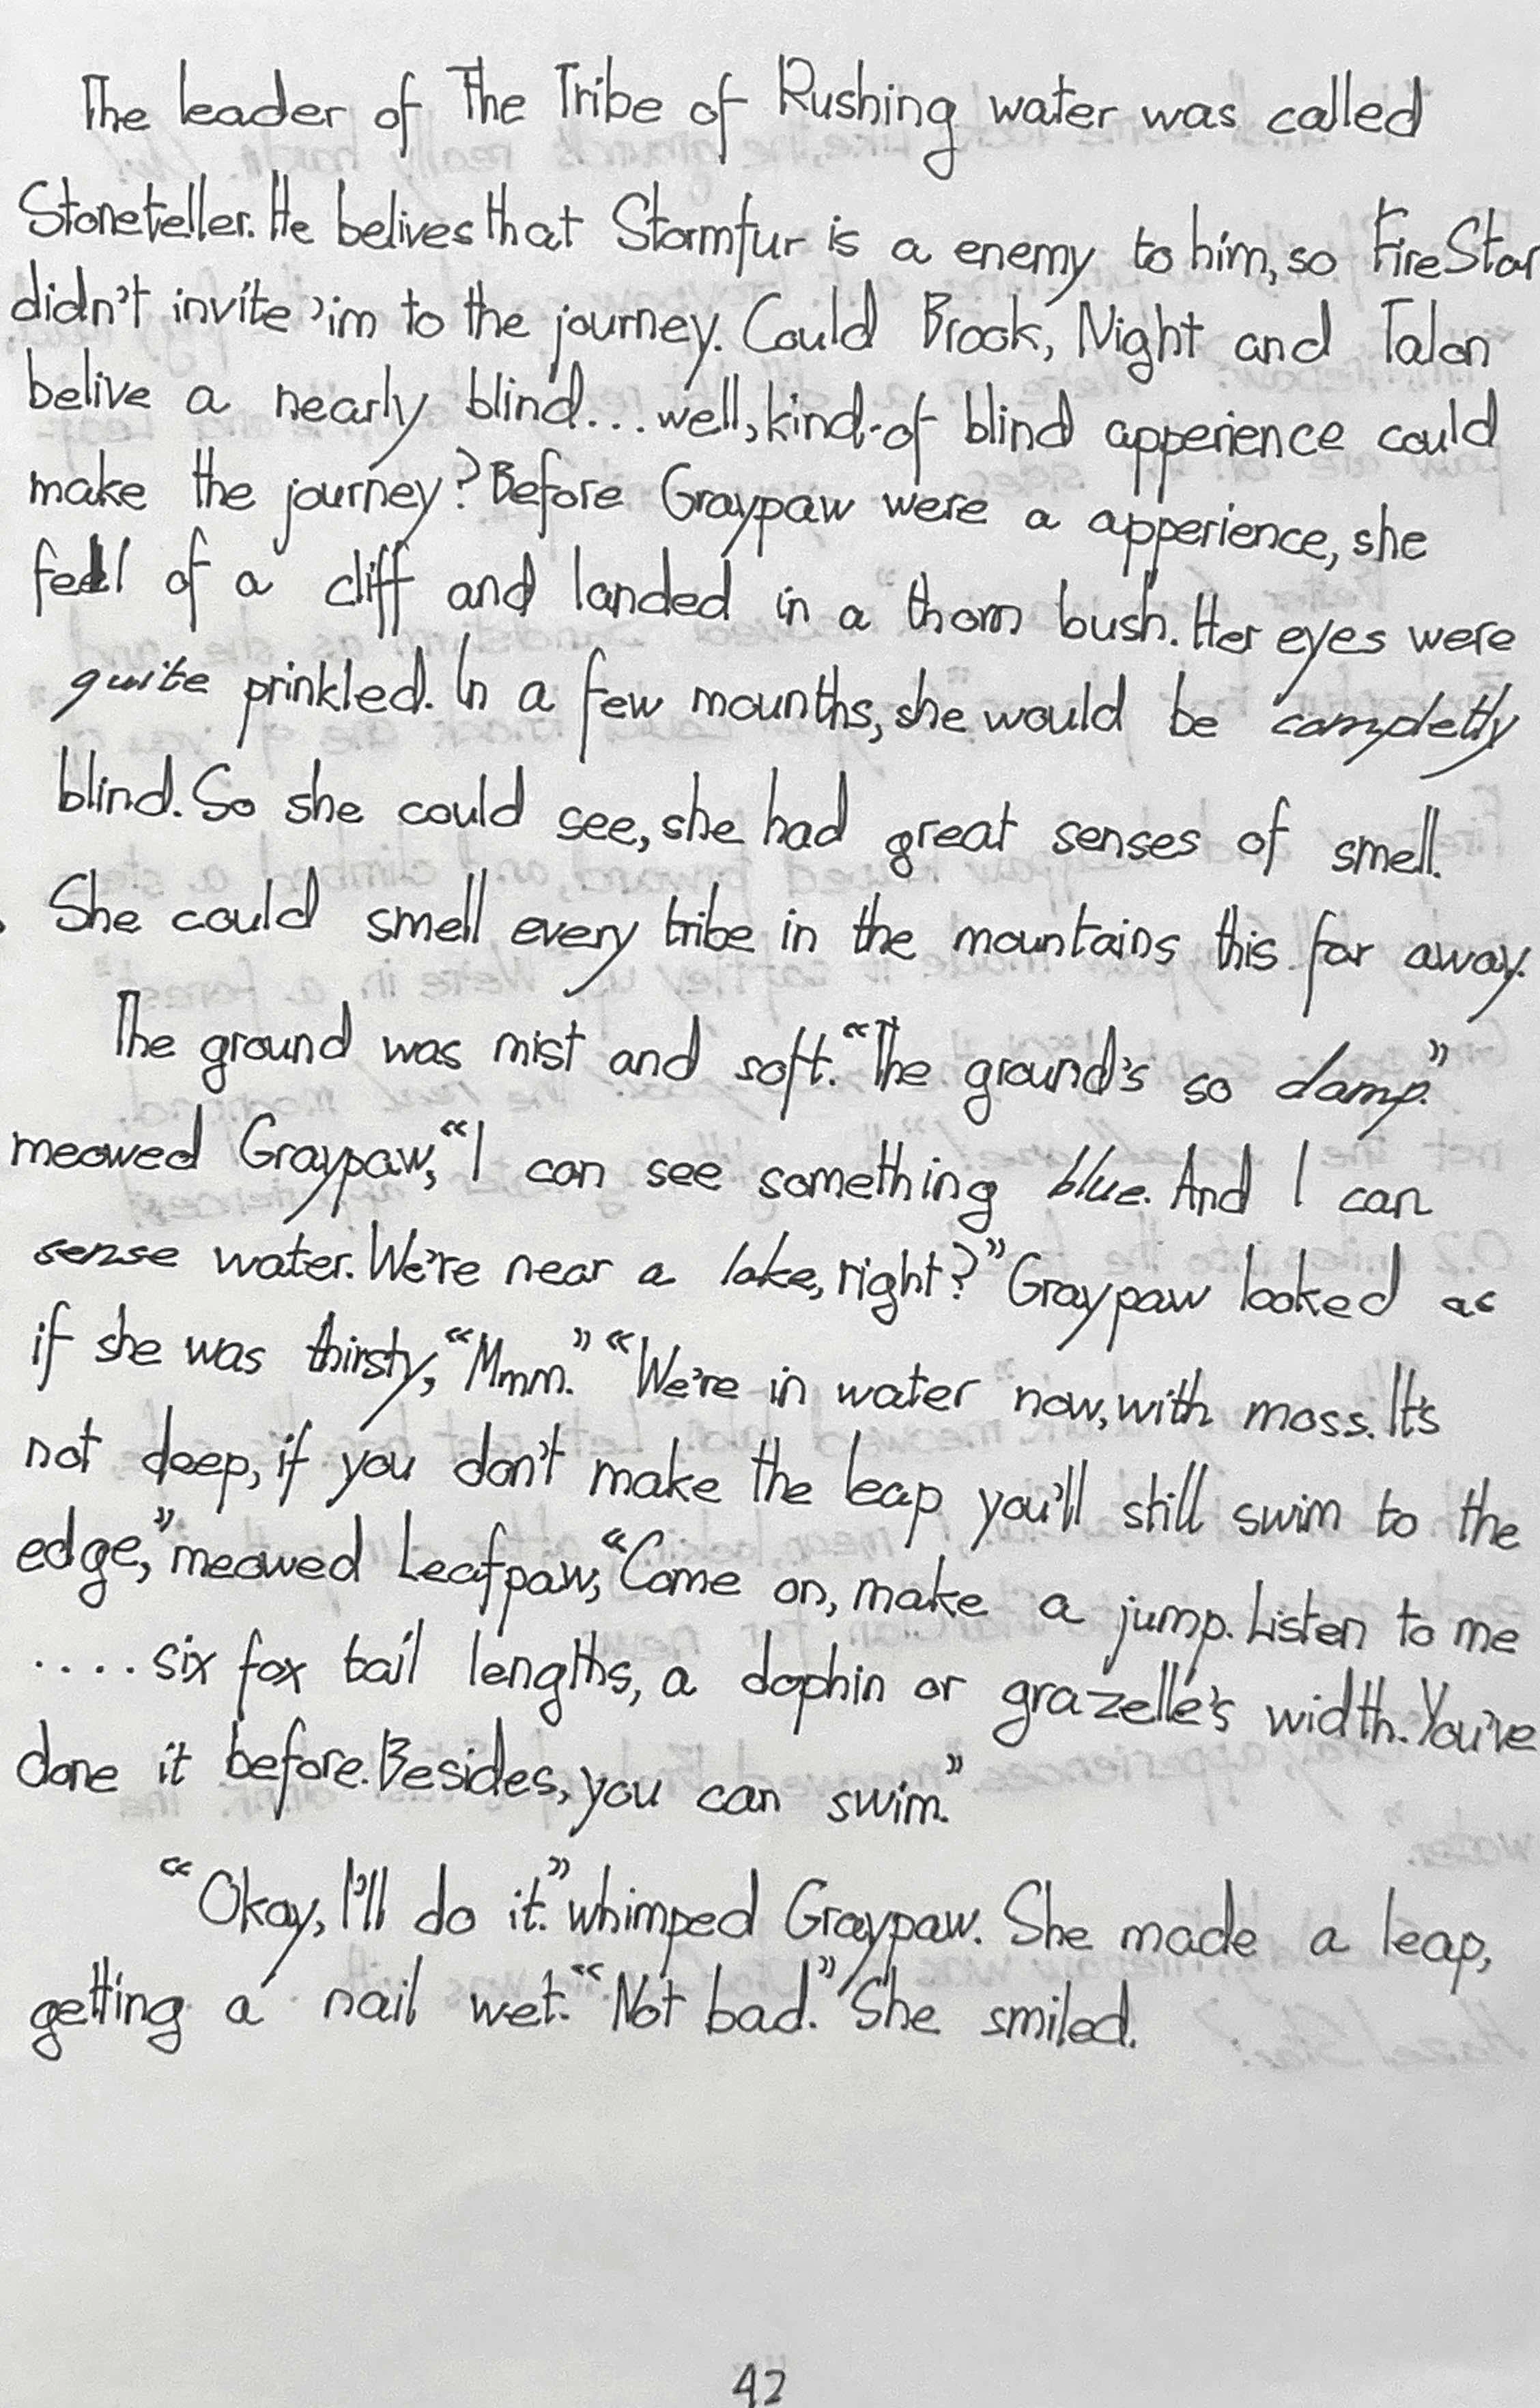 The leader of The Tribe of Rushing water was called
Stoneteller. He belives that Stormfur is a enemy to him, so FireStar
didn't invite 'im to the journey. Could Brook, Night and Talon
belive a nearly blind... well, kind-of blind apperience could
make the journey? Before Graypaw were a apperience, she
fell of a cliff and landed in a thorn bush. Her eyes were
quite prinkled. In a few mounths, she would be completly
blind. So she could see, she had great senses of smell.
She could smell every tribe in the mountains this far away.
The ground was mist and soft. “The ground's so damp.”
meowed Graypaw, “I can see something blue. And I can
sense water. We're near a lake, right?” Graypaw looked as
if she was thirsty, “Mmm.” “We're in water now, with moss. It's
not deep, if you don't make the leap you'll still swim to the
edge,” meowed Leafpaw, “Come on, make a jump. Listen to me
.... six fox tail lengths, a dophin or grazelle's width. You've
done it before. Besides, you can swim.”
“Okay, I'll do it.” whimped Graypaw. She made a leap,
getting a nail wet. “Not bad.” She smiled.
42